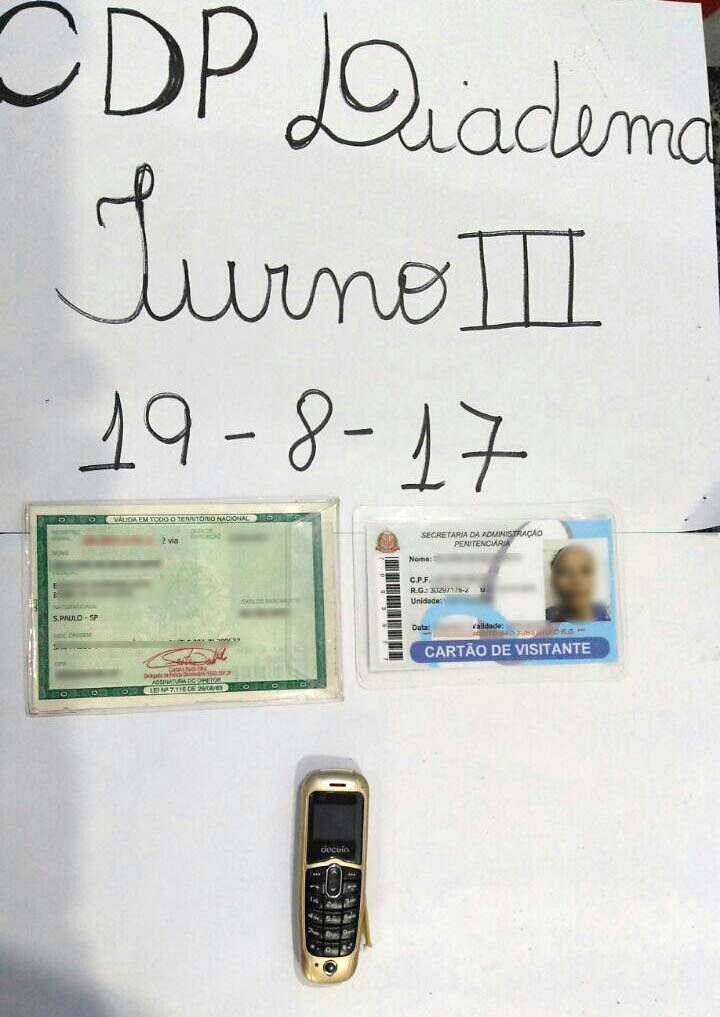 CDP Diadema
Turno III
19-8-17
VÁLIDA EM TODO O TERRITÓRIO NACIONAL
REGISTRO GERAL
2 via
DATA DE EXPEDIÇÃO
NOME
NATURALIDADE
S.PAULO - SP
DATA DE NASCIMENTO
DOC ORIGEM
CPF
ASSINATURA DO DIRETOR
LEI Nº 7.116 DE 29/08/83
SECRETARIA DA ADMINISTRAÇÃO
PENITENCIÁRIA
Nome:
C.P.F.
R.G.: 30297176-2
Unidade:
Data:
Validade:
CARTÃO DE VISITANTE